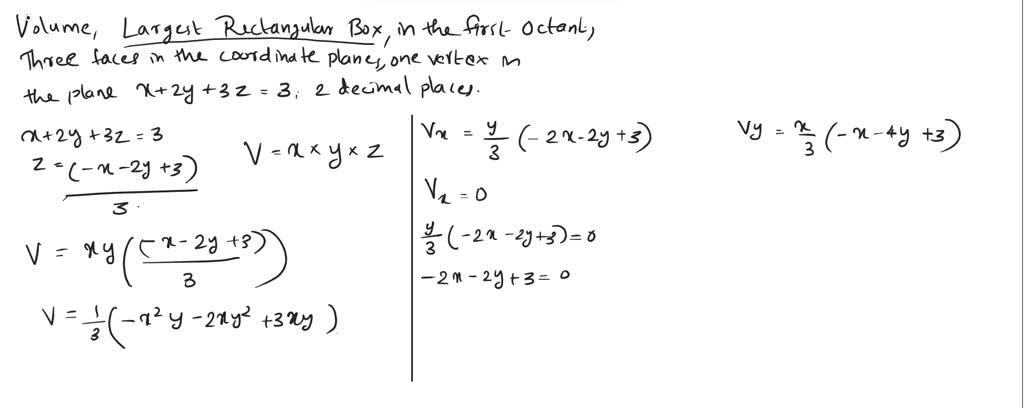 Volume, Largest Rectangular Box, in the first Octant,
Three faces in the coordinate planes, one vertex in
the plane x+2y+3z = 3. 2 decimal places.
x+2y+3z=3
z = (-x-2y+3)/3
V = x × y × z
V = xy((-x-2y+3)/3)
V = 1/3(-x²y - 2xy² + 3xy)
Vx = y/3(-2x-2y+3)
Vx = 0
y/3(-2x-2y+3)=0
-2x-2y+3=0
Vy = x/3(-x-4y+3)